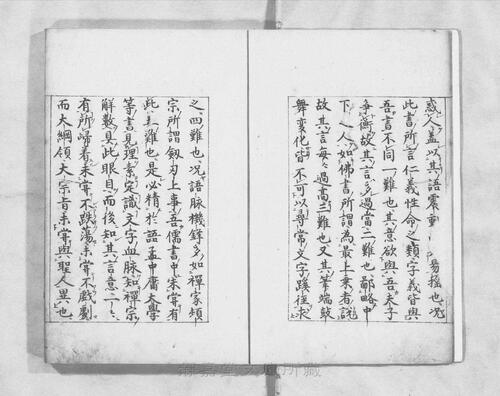 惑人蓋以其語震動
易搖也況
此書所言仁義性命之類字義皆與
吾書不同一難也其意欲與吾夫子
爭衡故其言多過當二難也鄙略中
下人如佛書所謂為最上乘者説
故其言每々過高三難也又其筆端鼓
舞變化皆不可以尋常文字蹊徑求
之四難也況語脉機鋒多如禪家頓
宗所謂劔刃上事吾儒書中未嘗有
此五難也是必精於語孟中庸大學
等書見理素定識文字血脉知禪宗
解數具此眼目而後知其言意一々
有所歸着未嘗不跌蕩未嘗不戲劇
而大綱領大宗旨未嘗與聖人異也